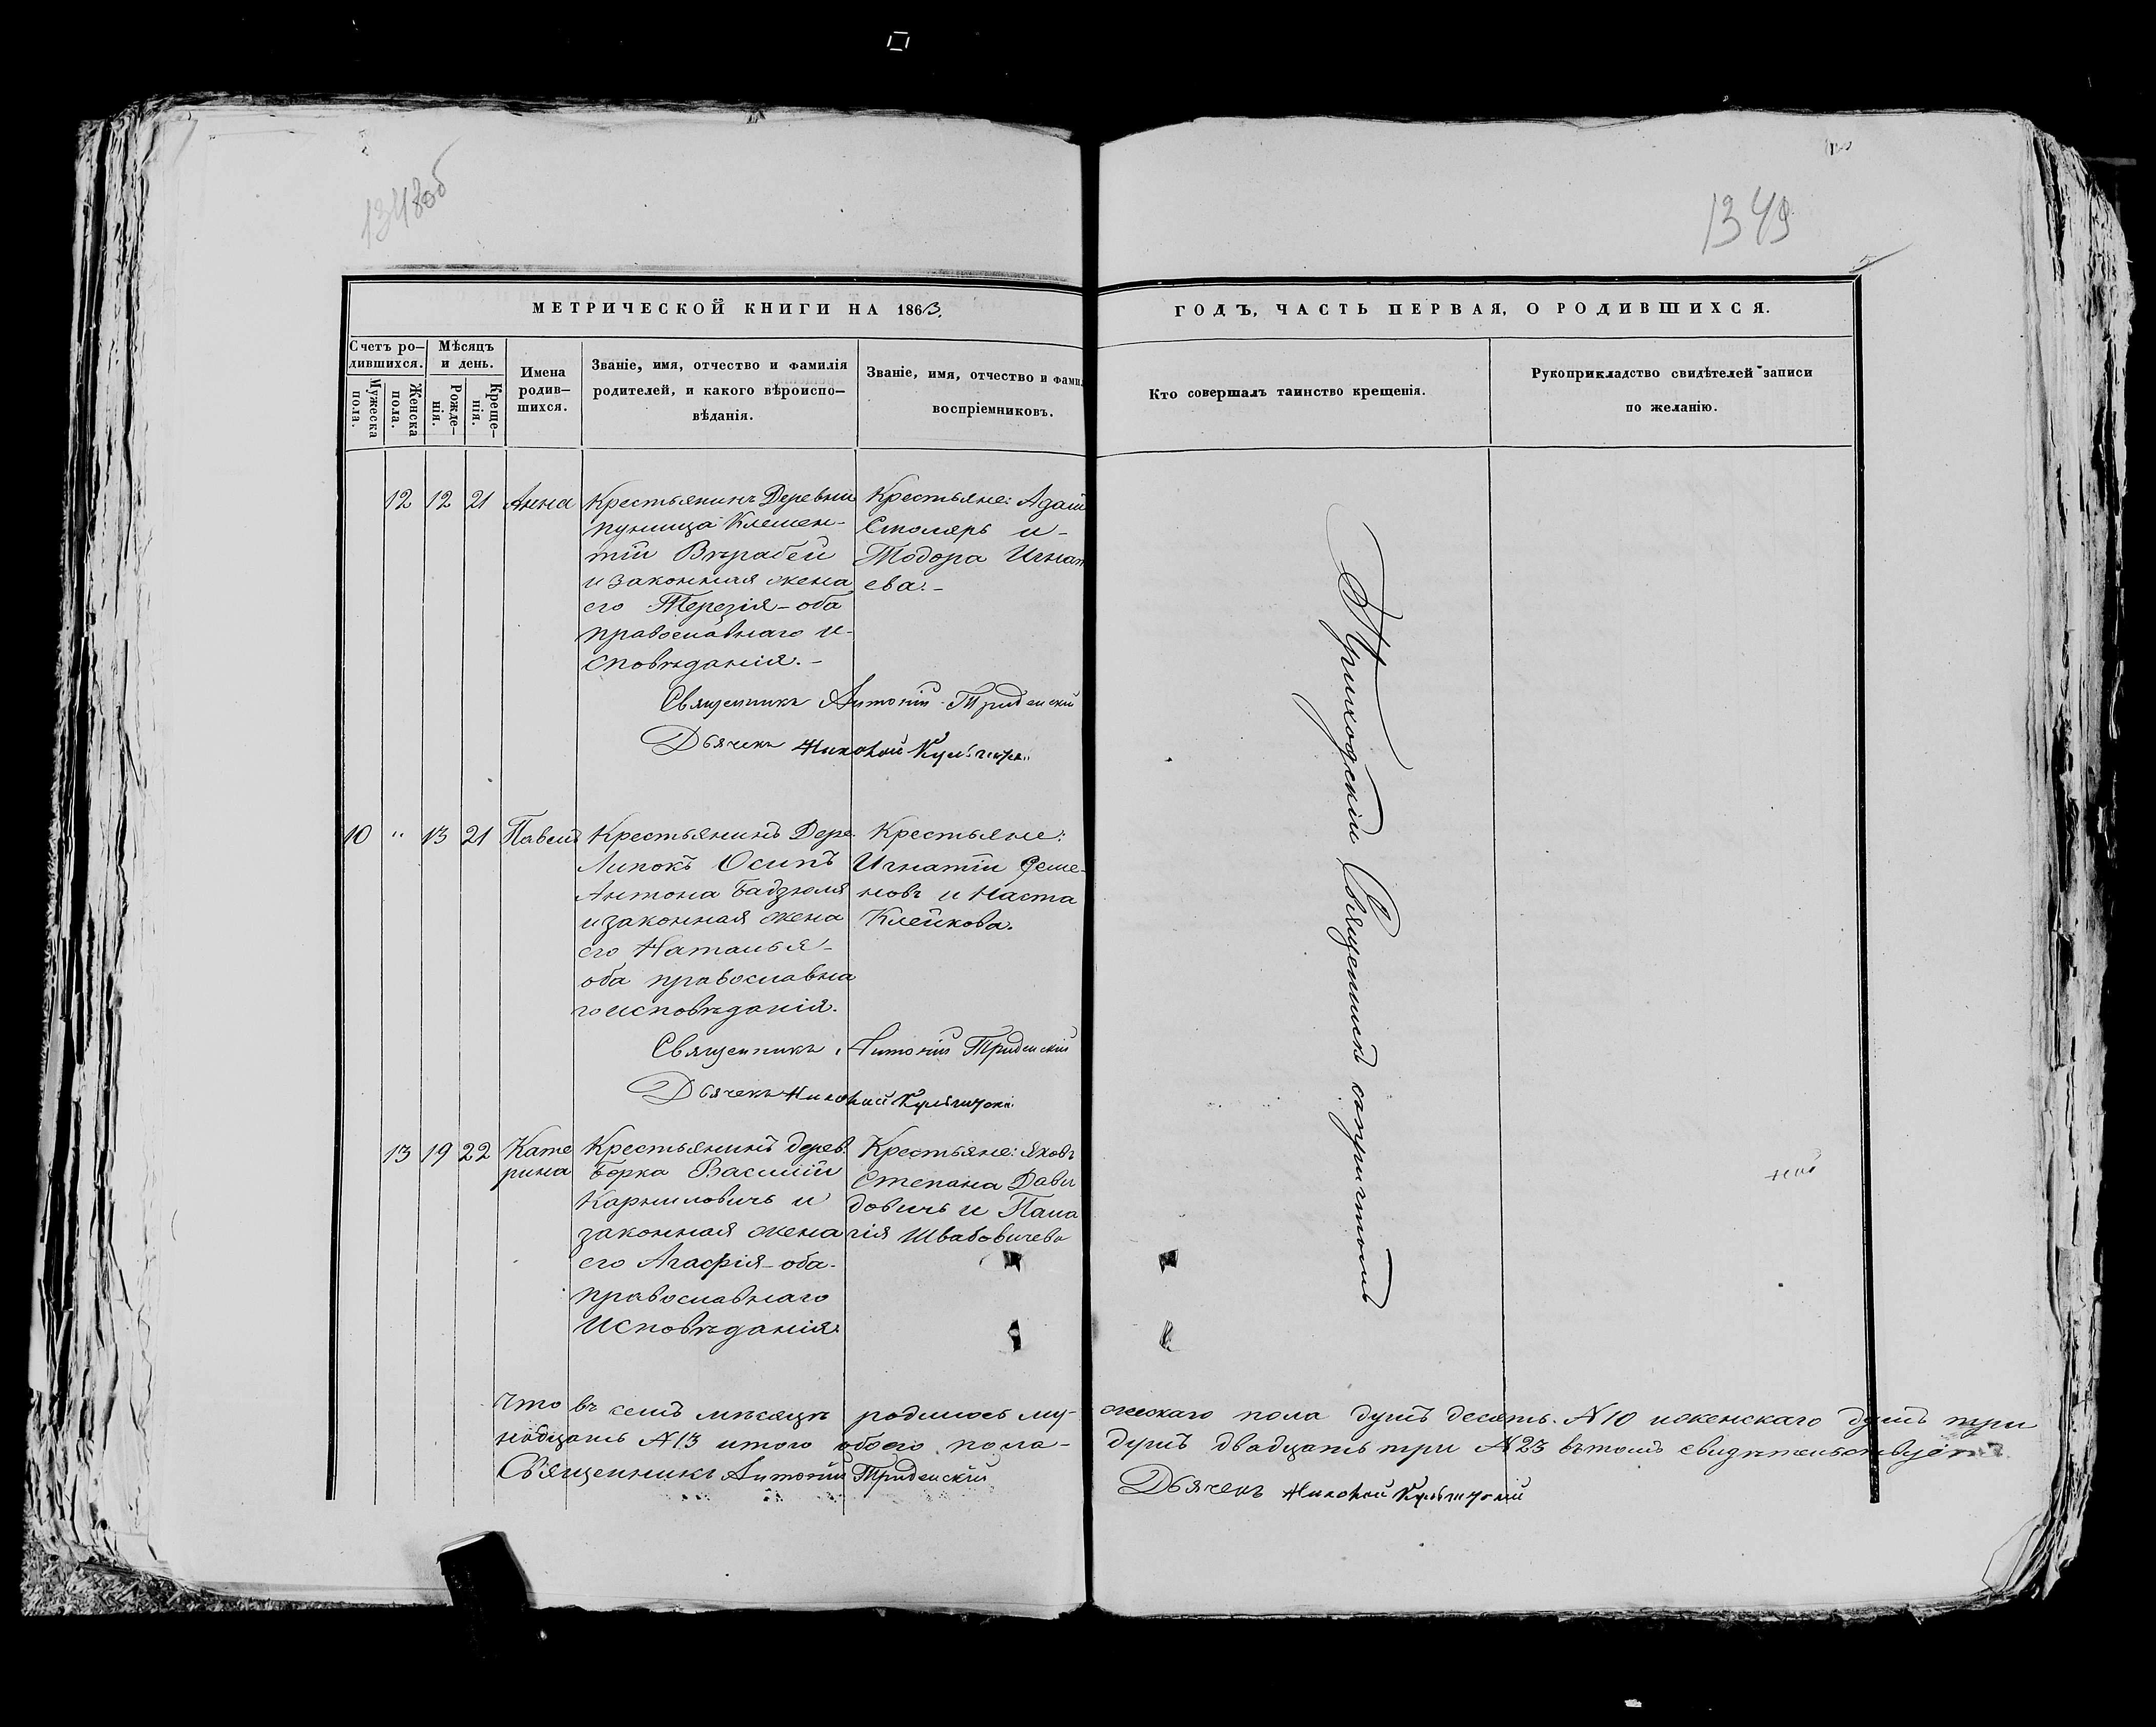 1348об
1349
МЕТРИЧЕСКОЙ КНИГИ НА 1863.
ГОДЪ, ЧАСТЬ ПЕРВАЯ, О РОДИВШИХСЯ.
Счетъ ро-
дившихся.
Мужеска
пола.
Женска
пола.
Мѣсяцъ
и день.
Рожде-
нія.
Креще-
нія.
Имена
родив-
шихся.
Званіе, имя, отчество и фамилія
родителей, и какого вѣроиспо-
вѣданія.
Званіе, имя, отчество и фами
воспріемниковъ.
Кто совершалъ таинство крещенія.
Рукоприкладство свидѣтелей записи
по желанію.
12 12 21 Анна
Крестьянинъ Деревни
Клемен-
тій
и законная жена
его Терезія - оба
православнаго и-
сповѣданія. -
Крестьяне: Адам
Столярь и -
Тодора Игнат
ева. -
Священникъ Антоній
Дьячекъ Николай
10 " 13 21 Павелъ
Крестьянинъ Дере.
Липокъ Осипъ
Антона Бадзюля
и законная жена
его Наталья -
оба православна
го исповѣданія.
Крестьяне:
Игнатій Семе-
новъ и Наста
Клейкова.
Священникъ Антоній
Дьячекъ Николай
13 19 22 Кате
рина
Крестьянинъ дерев.
Борка Василій
Карниловичь и
законная жена
его Агафія - оба -
православнаго
Исповѣданія.
Крестьяне: Яковъ
Степана Дави
довичь и Пала
гія Швабовичева
Приходскій Священникъ съ причтомъ
Что въ семъ мѣсяцѣ родилось му-
жескаго пола душъ десять. N10 и женскаго душъ три
надцать N13 итого обоего пола -
душъ двадцать три N23 въ томъ свидѣтельствуетъ
Священникъ Антоній
Дьячекъ Николай